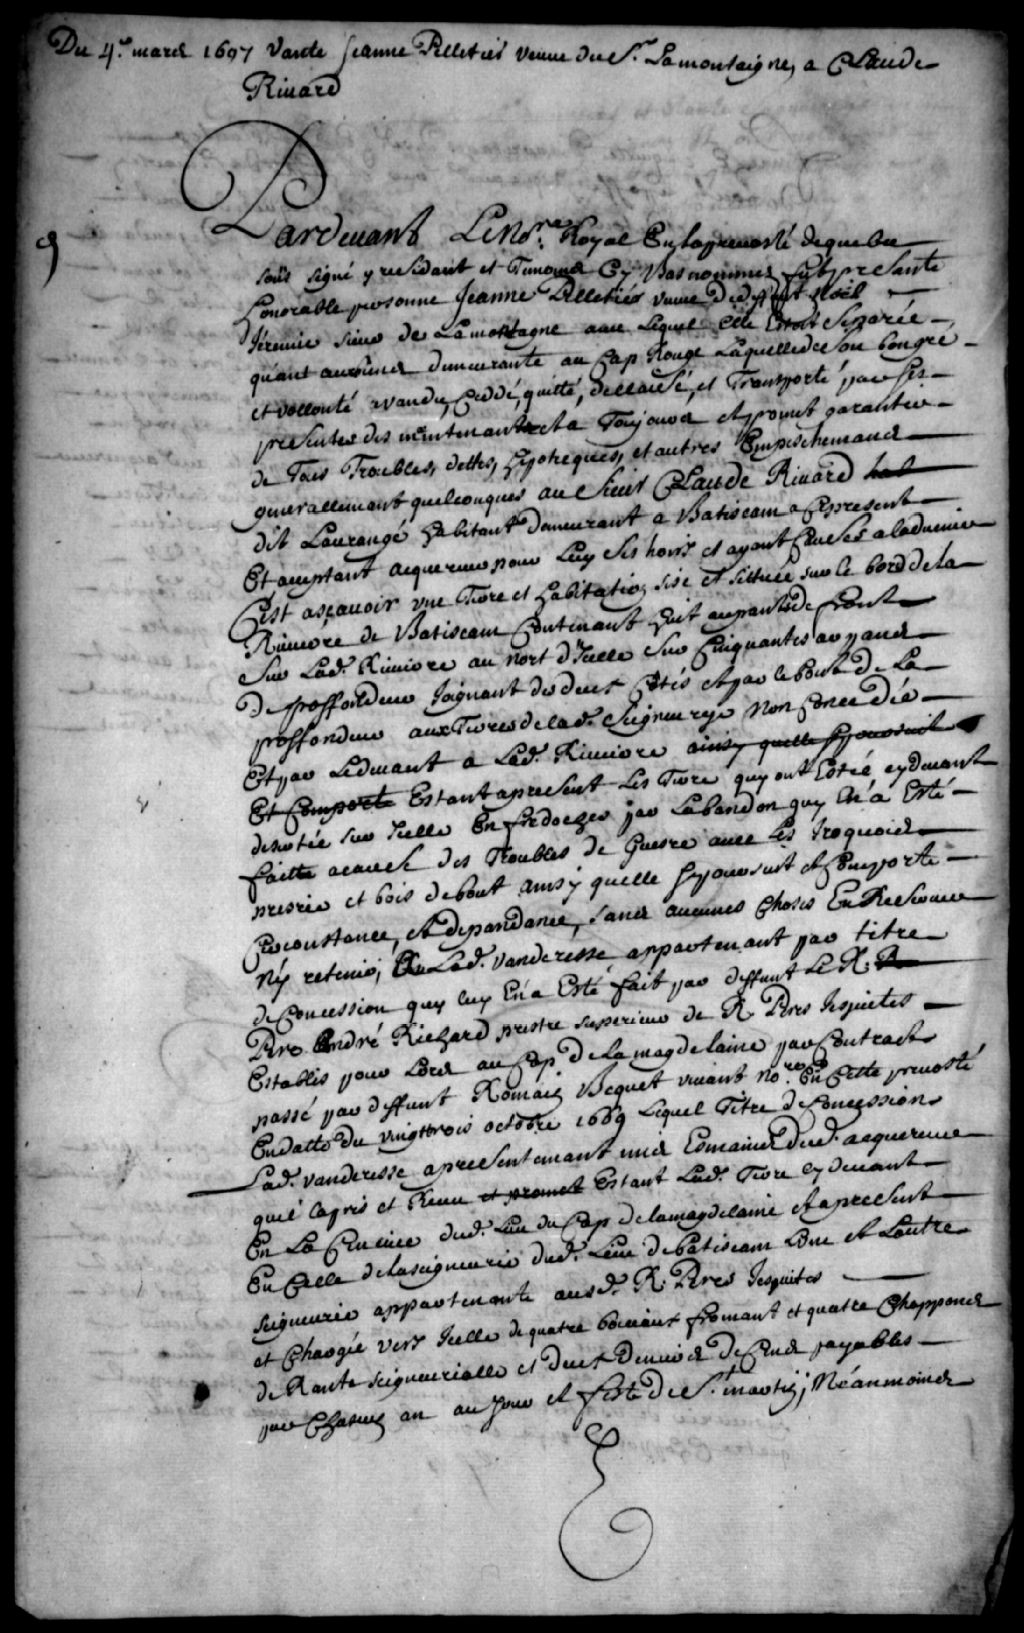 Du 4e. mars 1697 Vante Jeanne Pelletier veuve du Sr. Lamontaigne, a Claude
Rivard
Pardevant Le Nore. Royal En la prevosté de quebec
sous signé y residant et Temoins Cy Bas nommez fut presente
honorable personne Jeanne Pelletier veuve de deffunt Noël
Jeremie sieur de Lamontagne avec Lequel elle Estoit Separée
quant aux biens demeurante au Cap Rouge Laquelle de son bongré
et vollonté a vandu, Ceddé, quitté, dellaisé, et Transporté par ses
presentes des maintenant et a Toujours et promet garantir
de Tous Troubles, dettes, hypoteques, et autres Empeschemans
generallemant quelconques au Sieur Claude Rivard
dit Laurangé habitant demeurant a Batiscam a Ce present
Et aceptant acquereur pour Luy Ses hoirs et ayant Causes a ladvenir
C'est asçavoir une Terre et habitation sise et sittuée sur le bord de la
Riviere de Batiscam Contenant huit arpants de front
Sur Lade. Riviere au Nort d'Icelle Sur Cinquantes arpans
De proffondeur Joignant des deux Côtés et par le bout de La
proffondeur aux Terres de lade. Seigneurye Non Concedée
Et par Ledevant a Lade. Riviere ainsy quelle se poursuit
Et Comporte Estant apresent Les Terre quy ont Estée cy devant
desertée sur Icelle En fredoches par Labandon quy En a Esté
faitte acause des Troubles de Guerre avec Les Iroquois
presrie et bois debout ainsy quelle se poursuit et Comporte
Circonstance, et dependance, sans aucunes choses En Reserver
Ny retenir, Lad. vanderesse appartenant par titre
de Concession quy luy En a Esté fait par deffunt Le R.
Pere André Richard prestre superieur de R. Peres Jesuites
Establis pour Lors au Cap de la magdelaine par Contract
passé par deffunt Romain Becquet vivant nore. En Cette prevosté
En datte du vingt trois octobre 1669 Lequel Titre de Concession
Lade. vanderesse a presentemant mis Es mains dud. acquereur
qui l'a pris et Receu et promet Estant Lade. Terre cy devant
En La Censive dud. Lieu du Cap de la magdelaine et apresent
En Celle de la seigneurie dud. Lieu de batiscam L'une et L'autre
seigneurie appartenante ausd. R. Peres Jesuites
et Chargée vers Icelle de quatre boisseaux fromant et quatre Chappons
de Rante seigneurialle et deux deniers de Cens payables
par Chascun an au Jour et feste de St. martin; Néanmoins